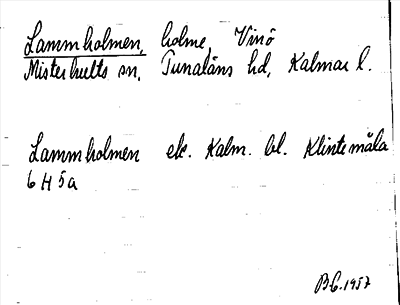 Lammholmen, holme, Vinö
Misterhults sn, Tunaläns hd, Kalmar l.
Lammholmen ek. Kalm. bl. Klintemåla
6 H 5a
B.G. 1957